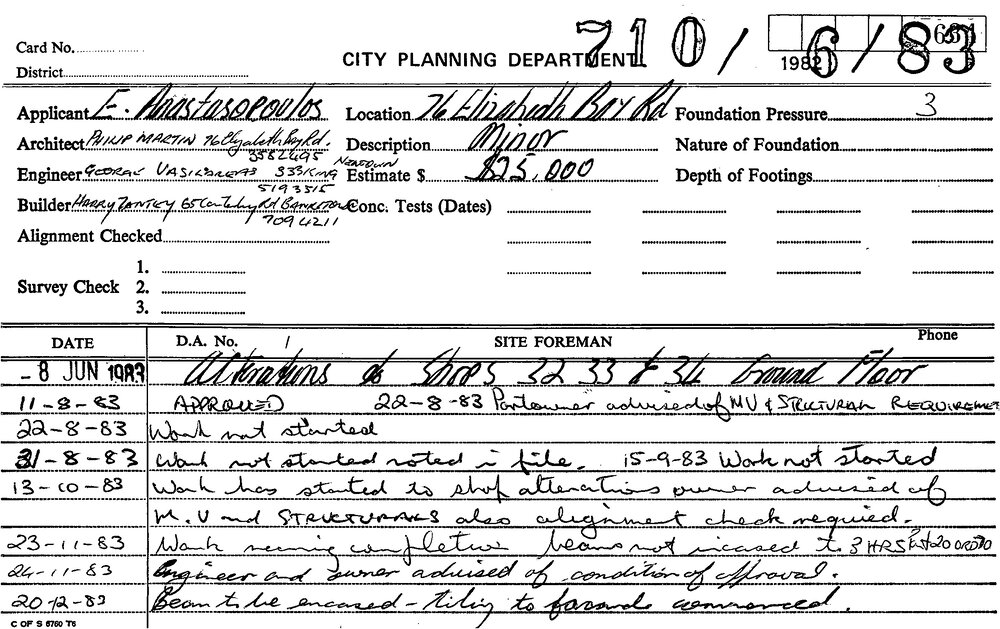 Card No.
710/6/83
District
CITY PLANNING DEPARTMENT
1982
Applicant E. Anastasopoulos Location 76 Elizabeth Bay Rd Foundation Pressure 3
Architect PHILIP MARTIN 76 Elizabeth Bay Rd. Description Minor Nature of Foundation
3582495
Engineer GEORGE 333 KING NEWTOWN Estimate $ $25,000 Depth of Footings
5193515
Builder HARRY Rd Conc. Tests (Dates)
709 4211
Alignment Checked
1.
Survey Check 2.
3.
DATE D.A. No. / SITE FOREMAN Phone
- 8 JUN 1983 Alterations to Shops 32 33 & 34 Ground Floor
11-8-83 APPROVED 22-8-83 advised of MV & STRUCTURAL REQUIREME
22-8-83 Work not started
31-8-83 Work not started noted in file. 15-9-83 Work not started
13-10-83 Work has started to shop alterations owner advised of
M.V and STRUCTURALS also alignment check required.
23-11-83 Work nearing completion beams not incased to 3 HRS ORD 70
24-11-83 Engineer and owner advised of condition of approval.
20-12-83 Beam to be encased - tiling to facade commenced.
C OF S 6760 T6